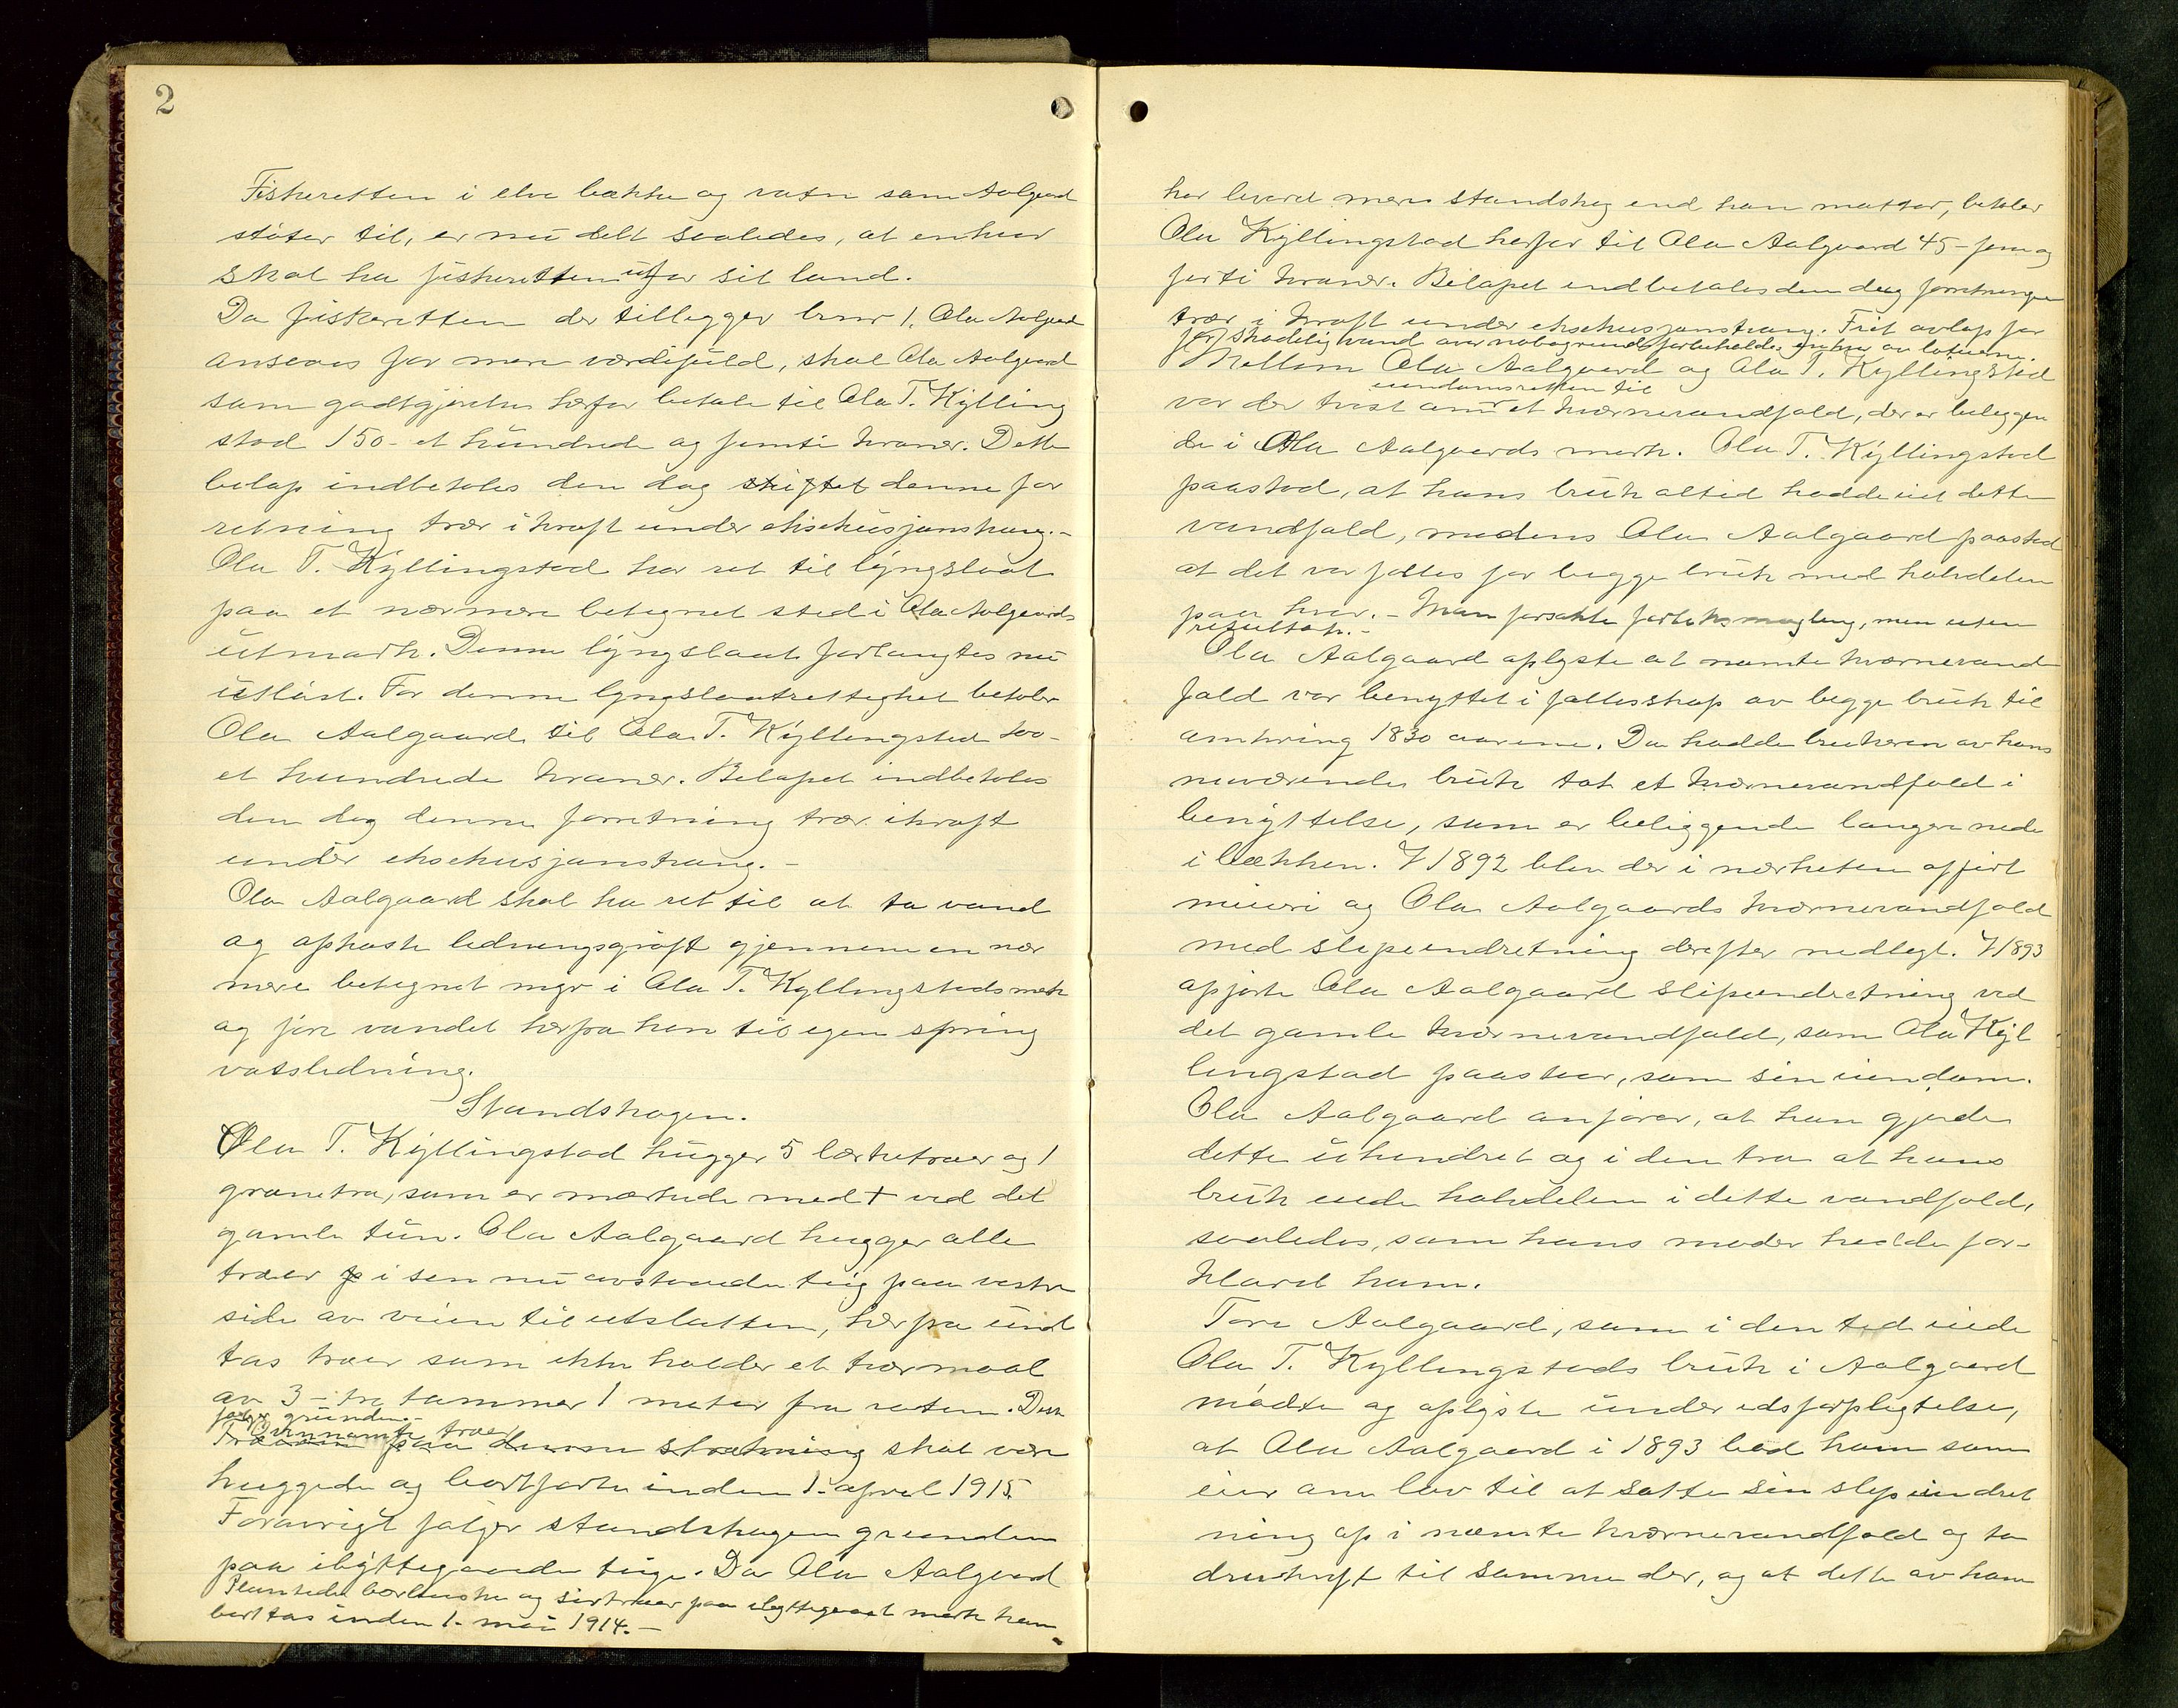 2
Fiskeretten i elve bække og vatn som Aalgaard
støter til, er nu delt saaledes, at enhver
skal ha fiskeretten utfor sit land.
Da fiskeretten der tillegger bruk 1, Ola Aalgaard
ansees for mere værdifuld, skal Ola Aalgaard
som godtgjørelse herfor betale til Ola T. Kylling
stad 150- et hundrede og femti kroner. Dette
beløp indbetales den dag skiftet denne for
retning trær i kraft under eksekusjonstvang.-
Ola T. Kyllingstad har ret til lyngslaat
paa et nærmere betegnet sted i Ola Aalgaards
utmark. Denne lyngslaat forlangtes nu
utløst. For denne lyngslaatrettighet betaler
Ola Aalgaard til Ola T. Kyllingstad 100-
et hundrede kroner. Beløpet indbetales
den dag denne forretning trær ikraft
under eksekusjonstvang.-
Ola Aalgaard skal ha ret til at ta vand
og opkaste ledningsgrøft gjennem en nær
mere betegnet myr i Ola T. Kyllingstads mark
og føre vandet herfra hen til egen spring
vatsledning.
Standskogen.
Ola T. Kyllingstad hugger 5 lærketraer og 1
granetre, som er mærkede med + ved det
gamle tun. Ola Aalgaard hugger alle
træer p i sin nu avstaaede teig paa vestre
side av veien til utslaatten, herfra und
tas træer som ikke holder et tvermaal
av 3- tre tommer 1 meter fra roten. Disse
følger grunden.-
Ovennevnte træer
Træerne paa denne strækning skal være
huggede og bortførte inden 1. april 1915.
Forøvrigt følger standskogen grunden
paa ibyttegaaede teige. Da Ola Aalgaard
Plantede bærbuske og sirtræer paa ibyttegaaet mark kan
borttas inden 1. mai 1914.-
har leveret mere standskog end han mottar, betaler
Ola Kyllingstad herfor til Ola Aalgaard 45- fem og
førti kroner. Beløpet indbetales den dag forretningen
trær i kraft under eksekusjonstvang. Frit avløp for
for skadelig vand over nabogrund forbeholdes enhver av lotterne.
Mellom Ola Aalgaard og Ola T. Kyllingstad
eiendomsretten til
var der tvist om et kværnevandfald, der er beliggen
de i Ola Aalgaards mark. Ola T. Kyllingstad
paastod, at hans bruk altid hadde eiet dette
vandfald, medens Ola Aalgaard paastod
at det var fælles for begge bruk med halvdelen
paa hver.- Man forsøkte forlik mægling, men uten
resultat.-
Ola Aalgaard oplyste at nevnte kværnevand
fald var benyttet i fællesskap av begge bruk til
omkring 1830 aarene. Da hadde brukeren av hans
nuværende bruk tat et kværnevandfald i
benyttelse, som er beliggende længere nede
i bækken. I 1892 blev der i nærheten opført
meieri og Ola Aalgaards kværnevandfald
med slipeindretning derefter nedlagt. I 1893
opførte Ola Aalgaard slipeindretning ved
det gamle kværnevandfald, som Ola Kyl
lingstad paastaar, som sin eiendom.
Ola Aalgaard anfører, at han gjorde
dette uhindret og i den tro at hans
bruk eide halvdelen i dette vandfald,
saaledes, som hans moder hadde for-
klaret ham.
Tore Aalgaard, som i den tid eiede
Ola T. Kyllingstads bruk i Aalgaard
mødte og oplyste under edsforpligtelse,
at Ola Aalgaard i 1893 bad ham som
eier om lov til at sætte sin slipeindret
ning op i nævnte kværnevandfald og ta
drivkraft til samme der, og at dette av ham